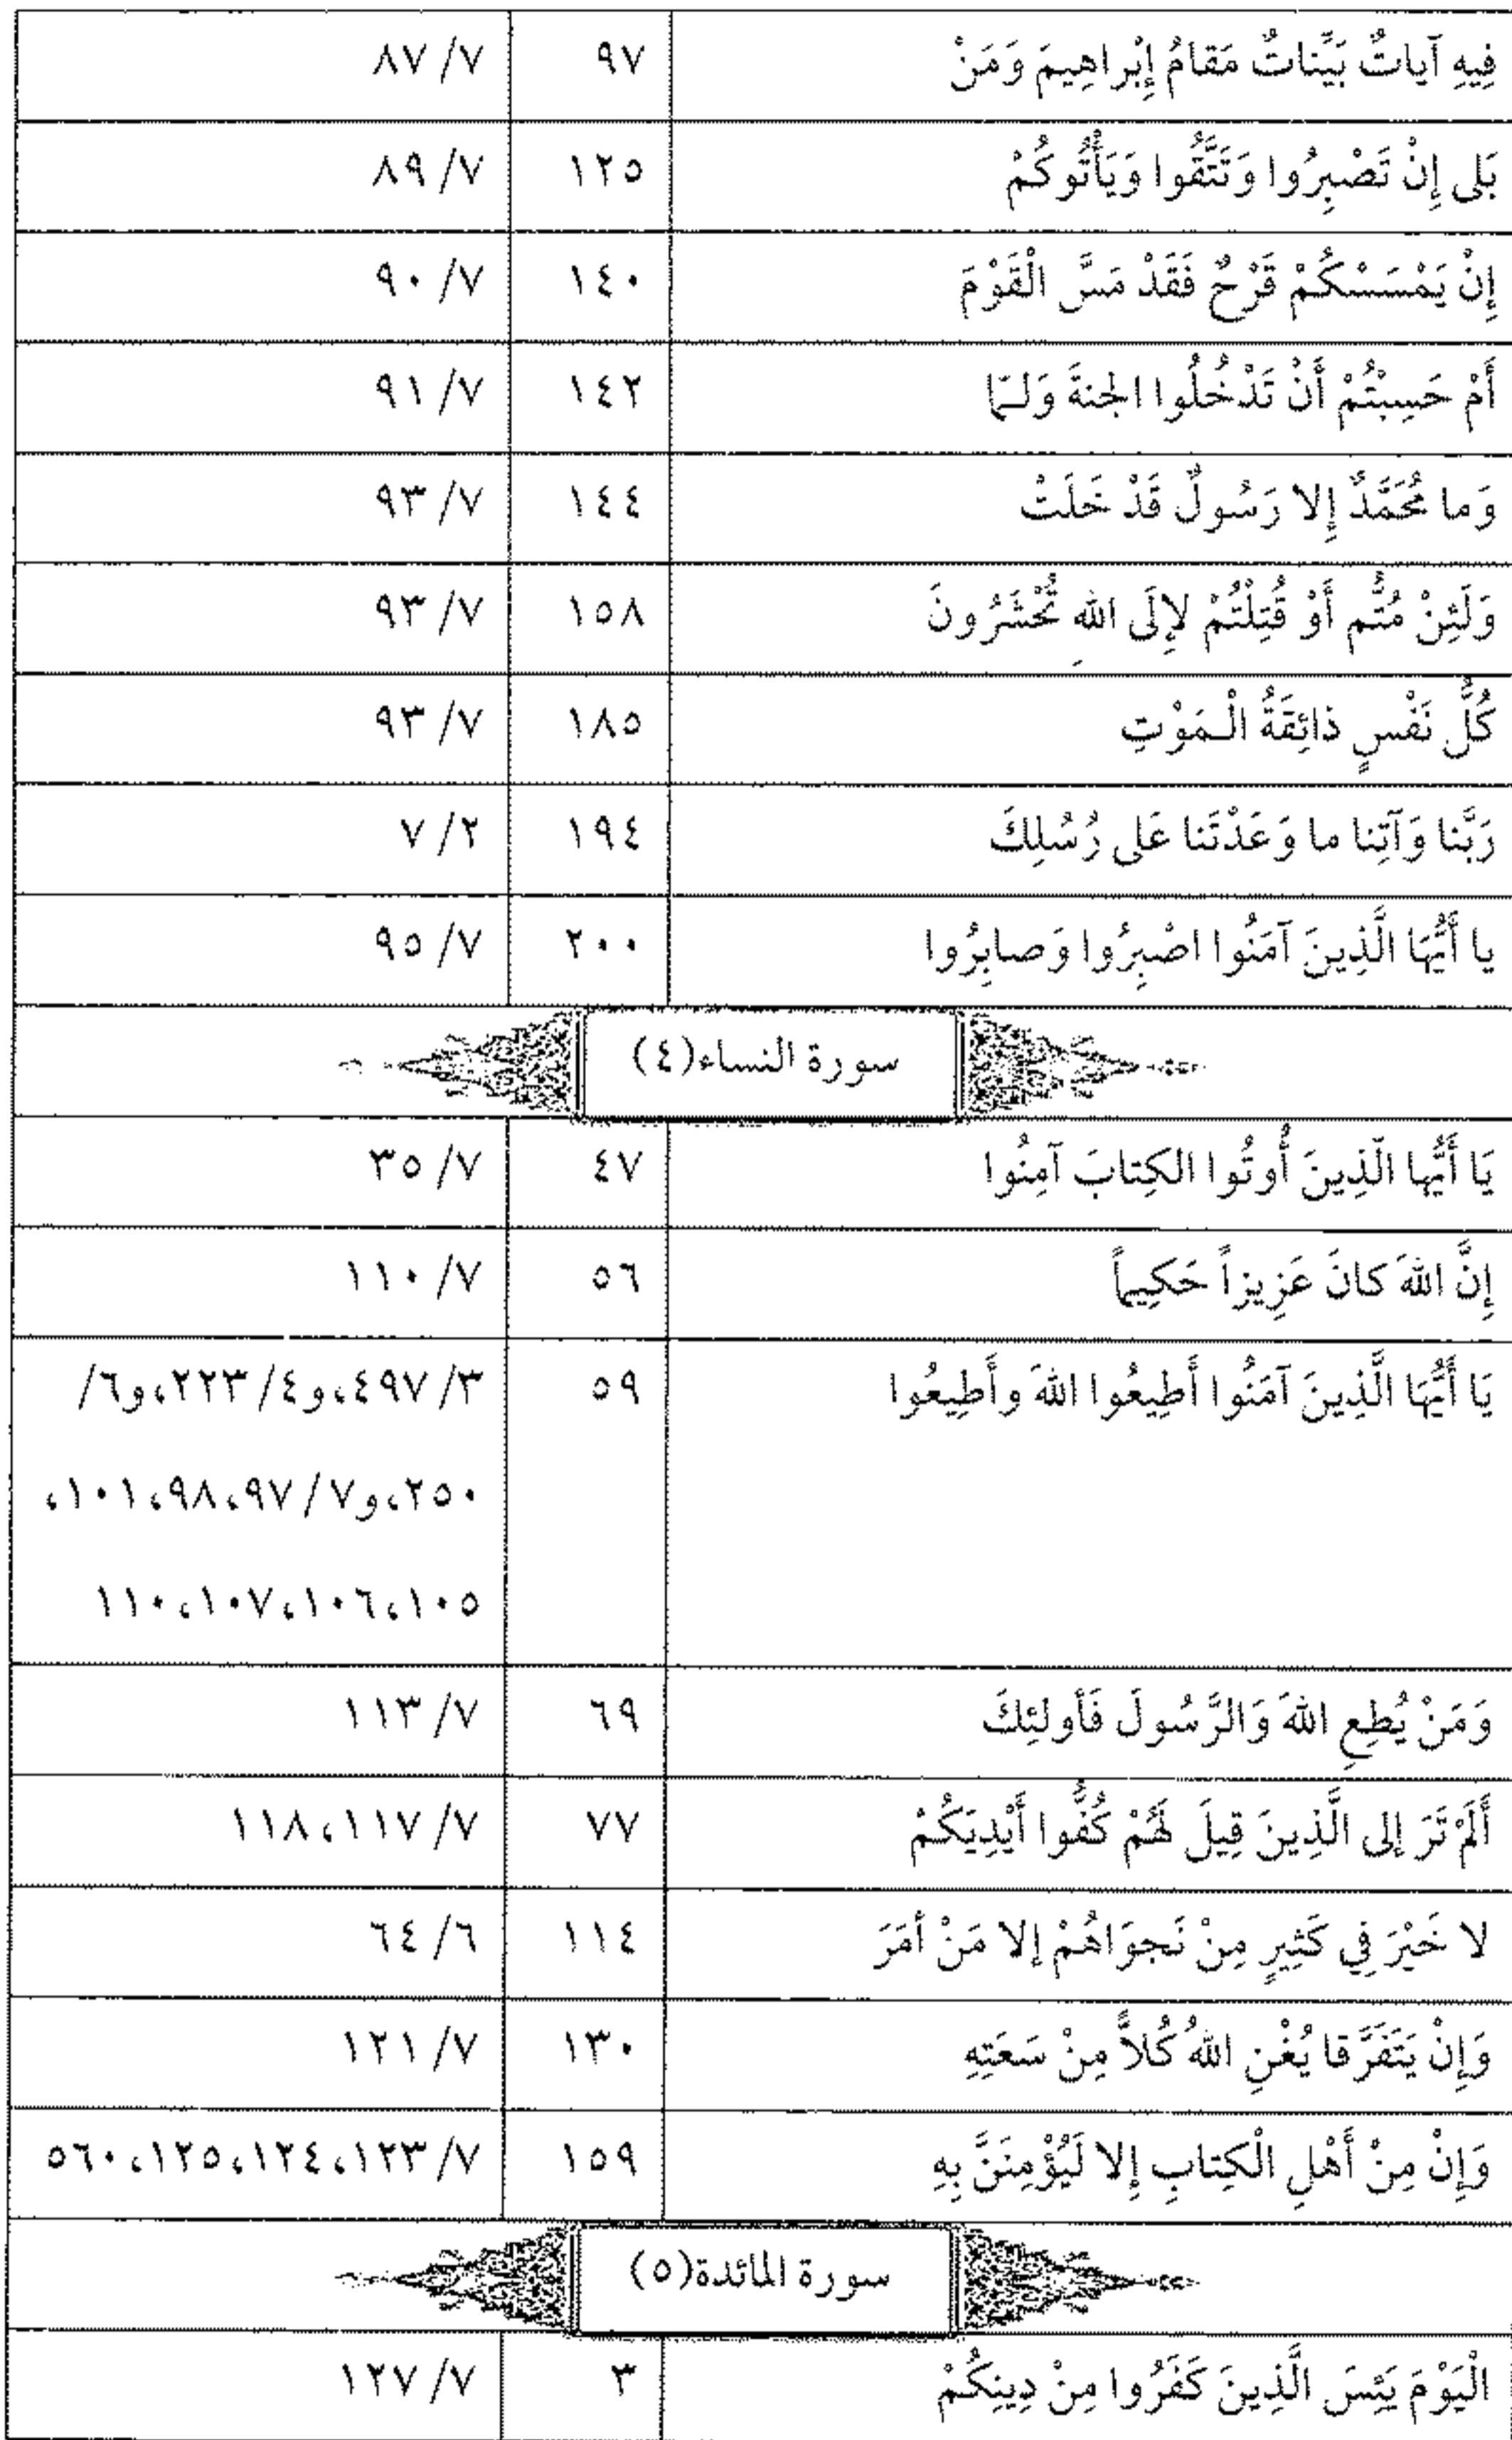 فِيهِ آياتٌ بَيِّناتٌ مَقامُ إِبْراهِيمَ وَمَنْ ٩٧ ٧/ ٨٧
بَلى إِنْ تَصْبِرُوا وَتَتَّقُوا وَيَأْتُوكُمْ ١٢٥ ٧/ ٨٩
إِنْ يَمْسَسْكُمْ قَرْحٌ فَقَدْ مَسَّ الْقَوْمَ ١٤٠ ٧/ ٩٠
أَمْ حَسِبْتُمْ أَنْ تَدْخُلُوا الجنةَ وَلـمّا ١٤٢ ٧/ ٩١
وَما مُحَمَّدٌ إِلا رَسُولٌ قَدْ خَلَتْ ١٤٤ ٧/ ٩٣
وَلَئِنْ مُتُّم أَوْ قُتِلْتُمْ لإِلَى اللهِ تُحْشَرُونَ ١٥٨ ٧/ ٩٣
كُلُّ نَفْسٍ ذائِقَةُ الْـمَوْتِ ١٨٥ ٧/ ٩٣
رَبَّنا وَآتِنا ما وَعَدْتَنا عَلى رُسُلِكَ ١٩٤ ٢/ ٧
يا أَيُّهَا الَّذِينَ آمَنُوا اصْبِرُوا وَصابِرُوا ٢٠٠ ٧/ ٩٥
سورة النساء(٤)
يَا أَيُّها الّذِينَ أُوتُوا الكِتابَ آمِنُوا ٤٧ ٧/ ٣٥
إِنَّ اللهَ كانَ عَزِيزاً حَكِيماً ٥٦ ٧/ ١١٠
يَا أَيُّهَا الَّذِينَ آمَنُوا أَطِيعُوا اللهَ وأَطِيعُوا ٥٩ ٣/ ٤٩٧، و٤/ ٢٢٣، و٦/
٢٥٠، و٧/ ٩٧، ٩٨، ١٠١،
١٠٥، ١٠٦، ١٠٧، ١١٠
وَمَنْ يُطِعِ اللهَ وَالرَّسُولَ فَأولئِكَ ٦٩ ٧/ ١١٣
أَلَمْ تَرَ إلى الَّذِينَ قِيلَ لَهُمْ كُفُّوا أَيْدِيَكُمْ ٧٧ ٧/ ١١٧، ١١٨
لا خَيْرَ فِي كَثِيرٍ مِنْ نَجوَاهُمْ إلا مَنْ أمَرَ ١١٤ ٦/ ٦٤
وَإِنْ يَتَفَرَّقا يُغْنِ اللهُ كُلاًّ مِنْ سَعَتِهِ ١٣٠ ٧/ ١٢١
وَإِنْ مِنْ أَهْلِ الْكِتابِ إِلا لَيُؤْمِنَنَّ بِهِ ١٥٩ ٧/ ١٢٣، ١٢٤، ١٢٥، ٥٦٠
سورة المائدة(٥)
الْيَوْمَ يَئِسَ الَّذِينَ كَفَرُوا مِنْ دِينِكُمْ ٣ ٧/ ١٢٧